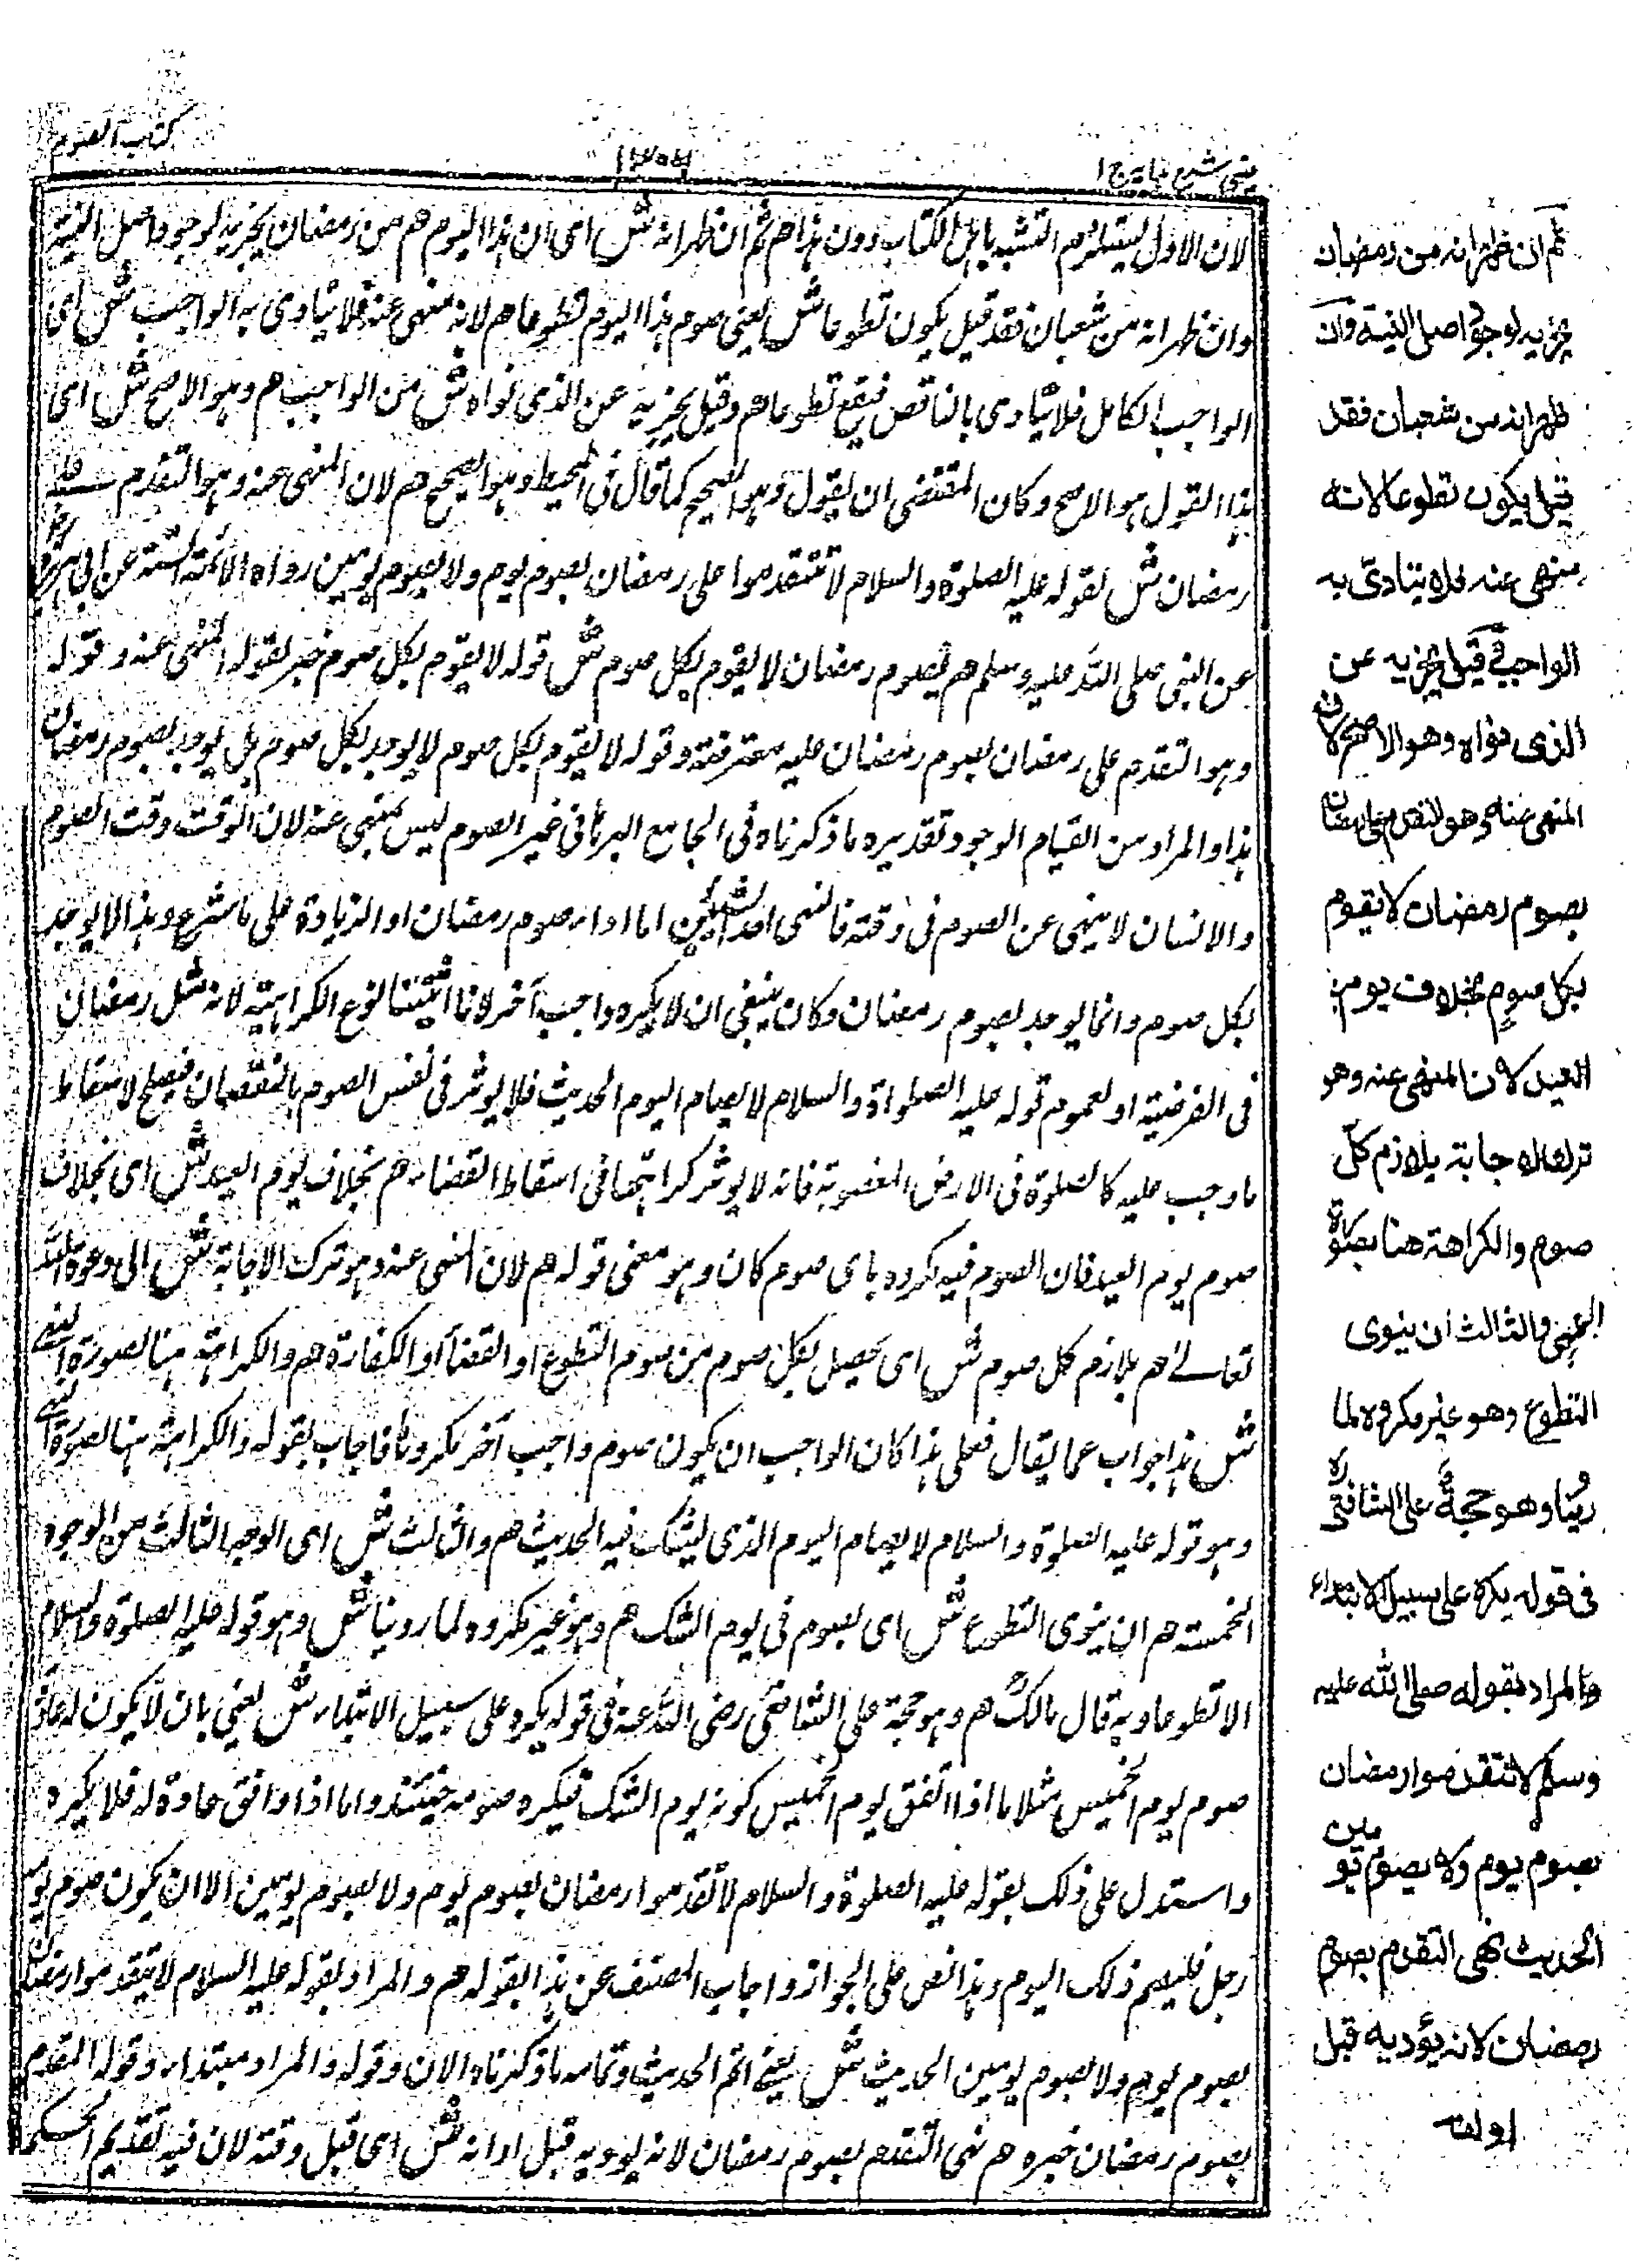 كتاب الصوم
١٣٠٤
عينى شرح هدايه ج ١
لان الاول يستلزم التشبه باهل الكتاب دون هذا هم ثم ان ظهر انه ش اى ان هذا اليوم هم من رمضان يجزيه لوجود اصل النية
وان ظهر انه من شعبان فقد قيل يكون تطوعا ش يعنى صوم هذا اليوم تطوعا هم لانه منهى عنه فلا يتادى به الواجب ش اى
الواجب الكامل فلا يتادى بالناقص فيقع تطوعا هم وقيل يجزيه عن الذى نواه ش من الواجب هم وهو الاصح ش اى
هذا القول هو الاصح وكان المقتضى ان يقول وهو الصحيح كما قال فى المحيط وهو الصحيح هم لان المنهى عنه وهو التقدم على
رمضان ش لقوله عليه الصلوة والسلام لا تتقدموا على رمضان بصوم يوم ولا بصوم يومين رواه الائمة الستة عن ابى هريرة
عن النبى صلى الله عليه وسلم هم بصوم رمضان لا يقوم بكل صوم ش قوله لا يقوم بكل صوم خبر لقوله المنهى عنه وقوله
وهو التقدم على رمضان بصوم رمضان عليه معترضة وقوله لا يقوم بكل صوم لا يوجد بكل صوم بل يوجد بصوم رمضان
هذا والمراد من القيام الوجود تقديره ما ذكرناه فى الجامع البرهانى خير الصوم ليس بمنهى عنه لان الوقت وقت الصوم
والانسان لا ينهى عن الصوم فى وقته فالنهى احد الشيئين اما اداء صوم رمضان او الزيادة على ما شرع وهذا لا يوجد
بكل صوم وانما يوجد بصوم رمضان وكان ينبغى ان لا يكره واجب آخر لانا اثبتنا نوع الكراهية لانه مثل رمضان
فى الفرضية او لعموم قوله عليه الصلواة والسلام لا يصام اليوم الحديث فلا يوثر فى نفس الصوم بالنقصان فيصلح لاسقاط
ما وجب عليه كالصلوة فى الارض المغصوبة فانه لا يوثر كراهتها فى اسقاط القضاء هم بخلاف يوم العيد ش اى بخلاف
صوم يوم العيد فان الصوم فيه مكروه باى صوم كان وهو معنى قوله هم لان المنهى عنه وهو ترك الاجابة ش الى دعوة الله
تعالى هم يلازم كل صوم ش اى يحصل بكل صوم من صوم التطوع او القضاء او الكفارة هم والكراهة هنا لصورة النهى
ش هذا جواب عما يقال فعلى هذا كان الواجب ان يكون صوم واجب آخر مكروها فاجاب بقوله والكراهة هنا لصورة النهى
وهو قوله عليه الصلوة والسلام لا يصام اليوم الذى يشك فيه الحديث هم والثالث ش اى الوجه الثالث من الوجوه
الخمسة هم ان ينوى التطوع ش اى بصوم فى يوم الشك هم وهو غير مكروه لما روينا ش وهو قوله عليه الصلوة والسلام
الا تطوعا وبه قال مالك هم وهو حجة على الشافعى رضى الله عنه فى قوله يكره على سبيل الابتداء ش يعنى بان لا يكون له عادة
صوم يوم الخميس مثلا ما اذا اتفق يوم الخميس كونه يوم الشك فيكره صومه حينئذ واما اذا وافق عادة له فلا يكره
واستدل على ذلك بقوله عليه الصلوة والسلام لا تقدموا رمضان بصوم يوم ولا بصوم يومين الا ان يكون صوم يوم
رجل فليصم ذلك اليوم وهذا نص على الجواز واجاب المصنف عن هذا بقوله هم والمراد بقوله عليه السلام لا تتقدموا رمضان
بصوم يوم ولا بصوم يومين الحديث ش يعنى اتم الحديث وتمامه ما ذكرناه الان وقوله والمراد مبتداء وقوله التقدم
بصوم رمضان خبره هم نهى التقدم بصوم رمضان لانه يوديه قبل اوانه ش اى قبل وقته لان فيه تقديم الحكم
ثم ان ظهر انه من رمضان
يجزيه لوجود اصل النية وان
ظهر انه من شعبان فقد
قيل يكون تطوعا لانه
منهى عنه فلا يتادى به
الواجب وقيل يجزيه عن
الذى نواه وهو الاصح لان
المنهى عنه وهو التقدم على رمضان
بصوم رمضان لا يقوم
بكل صوم بخلاف يوم
العيد لان المنهى عنه وهو
ترك الاجابة يلازم كل
صوم والكراهة هنا بصورة
النهى والثالث ان ينوى
التطوع وهو غير مكروه لما
روينا وهو حجة على الشافعى ره
فى قوله يكره على سبيل الابتداء
والمراد بقوله صلى الله عليه
وسلم لا تتقدموا رمضان
بصوم يوم ولا بصوم يومين
الحديث نهى التقدم بصوم
رمضان لانه يؤديه قبل
اوانه